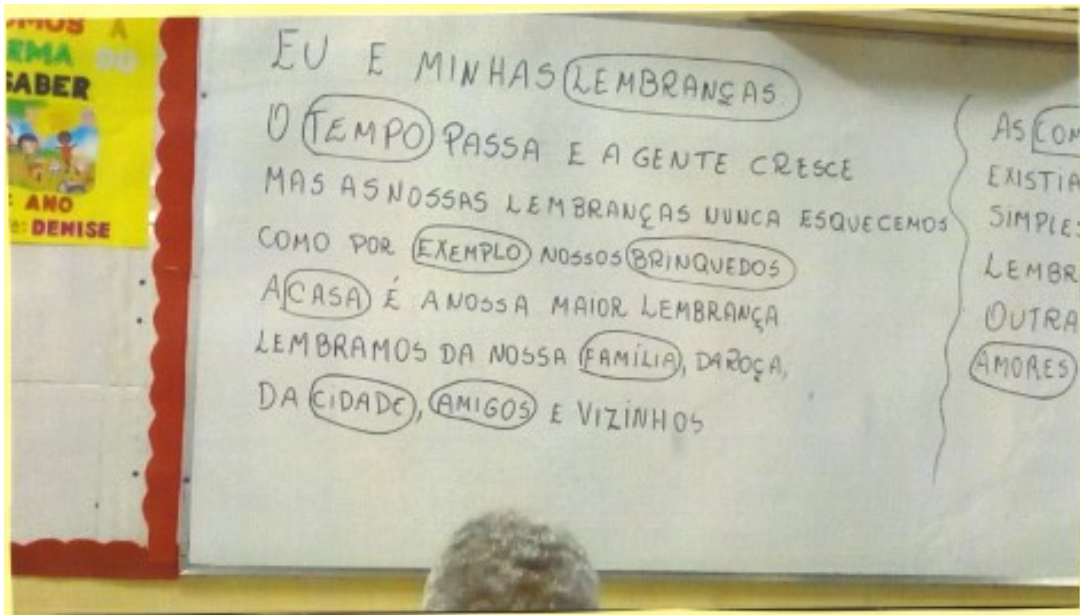 SABER
ANO
DENISE
EU E MINHAS LEMBRANÇAS
O TEMPO PASSA E A GENTE CRESCE
MAS AS NOSSAS LEMBRANÇAS NUNCA ESQUECEMOS
COMO POR EXEMPLO NOSSOS BRINQUEDOS
A CASA É A NOSSA MAIOR LEMBRANÇA
LEMBRAMOS DA NOSSA FAMÍLIA, DA ROÇA,
DA CIDADE, AMIGOS E VIZINHOS
AS COM
EXISTIA
SIMPLES
LEMBR
OUTRA
AMORES